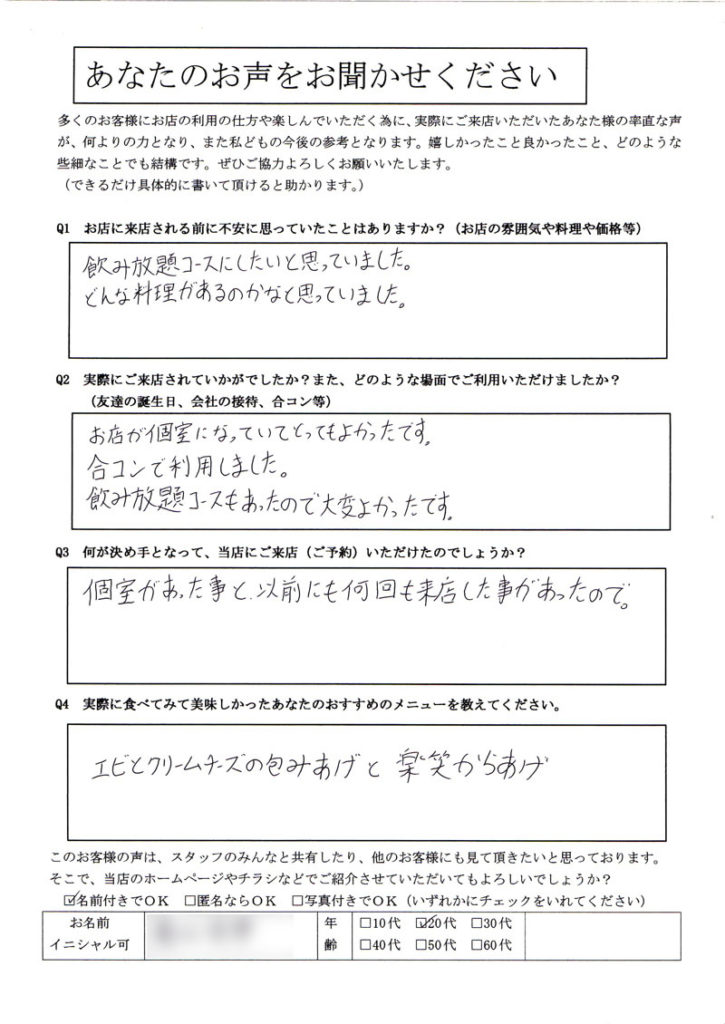 あなたのお声をお聞かせください
多くのお客様にお店の利用の仕方や楽しんでいただく為に、実際にご来店いただいたあなた様の率直な声
が、何よりの力となり、また私どもの今後の参考となります。嬉しかったこと良かったこと、どのような
些細なことでも結構です。ぜひご協力よろしくお願いいたします。
（できるだけ具体的に書いて頂けると助かります。）
Q1 お店に来店される前に不安に思っていたことはありますか？（お店の雰囲気や料理や価格等）
飲み放題コースにしたいと思っていました。
どんな料理があるのかなと思っていました。
Q2 実際にご来店されていかがでしたか？また、どのような場面でご利用いただけましたか？
（友達の誕生日、会社の接待、合コン等）
お店が個室になっていてとってもよかったです。
合コンで利用しました。
飲み放題コースもあったので大変よかったです。
Q3 何が決め手となって、当店にご来店（ご予約）いただけたのでしょうか？
個室があった事と、以前にも何回も来店した事があったので。
Q4 実際に食べてみて美味しかったあなたのおすすめのメニューを教えてください。
エビとクリームチーズの包みあげと 楽笑からあげ
このお客様の声は、スタッフのみんなと共有したり、他のお客様にも見て頂きたいと思っております。
そこで、当店のホームページやチラシなどでご紹介させていただいてもよろしいでしょうか？
☑名前付きでOK □匿名ならOK □写真付きでOK（いずれかにチェックをいれてください）
お名前
イニシャル可
年齢
□10代 ☑20代 □30代
□40代 □50代 □60代